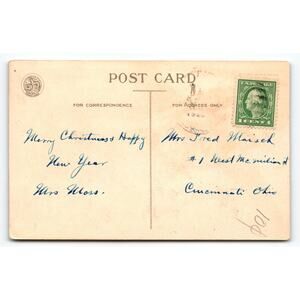 POST CARD
FOR CORRESPONDENCE
FOR ADDRESS ONLY
Merry Christmas & Happy
New Year
Mrs Moss.
Mrs Fred Maisch
#1 West McMillan
Cincinnati Ohio
1 CENT 1